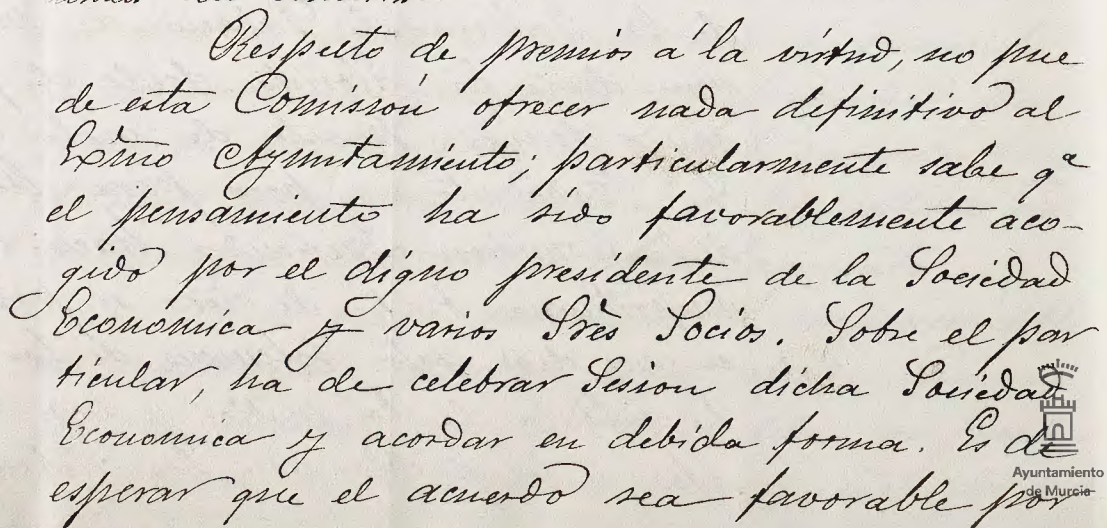 Respecto de premios á la virtud, no pue
de esta Comisión ofrecer nada definitivo al
Exmo Ayuntamiento; particularmente sabe qe
el pensamiento ha sido favorablemente aco-
gido por el digno presidente de la Sociedad
Economica y varios Sres Socios. Sobre el par
ticular, ha de celebrar Sesion dicha Sociedad
Economica y acordar en debida forma. Es de
esperar que el acuerdo sea favorable por
Ayuntamiento
de Murcia